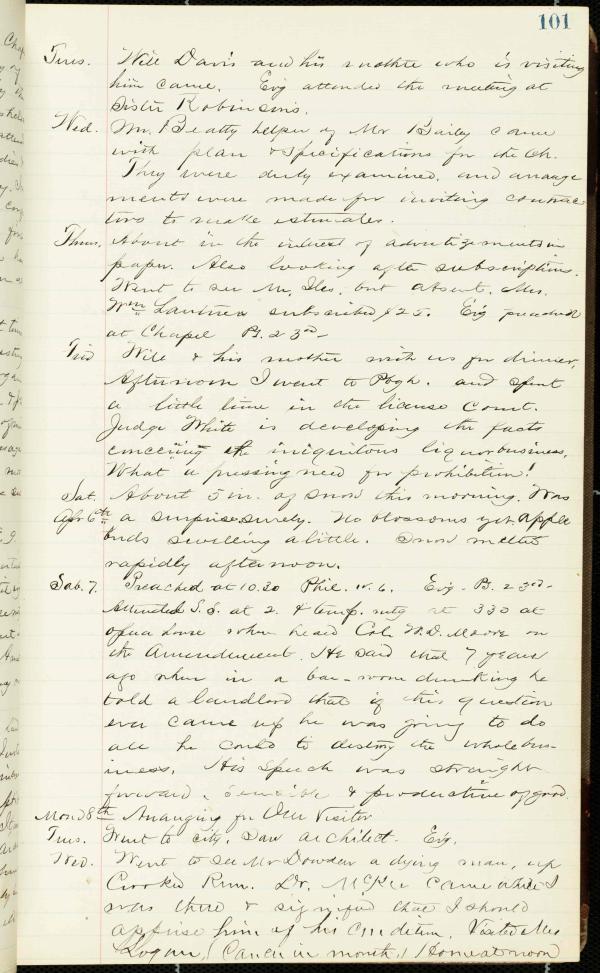 101
Tues. Will Davis and his mother who is visiting
him came. Evg attended the meeting at
Sister Robinsons.
Wed. Mr. Beatty helper of Mr Bailey came
with plan & specifications for the Ch.
They were duly examined, and arrange
ments were made for inviting contrac
tors to make estimates.
Thurs. About in the interest of advertizements in
paper. Also looking after subscriptions.
Went to see Mr. Iles, but absent. Mrs.
Wm subscribed $25. Evg preached
at Chapel Ps. 23rd
Frid Will & his mother with us for dinner,
Afternoon I went to Pbgh. and spent
a little time in the license Court.
Judge White is developing the facts
concerning the iniquitous liquor business.
What a pressing need for prohibition!
Sat. About 5 in. of snow this morning. Was
Apr 6th a surprise surely. No blossoms yet. Apple
buds swelling a little. Snow melted
rapidly afternoon.
Sab. 7. Preached at 10.30 Phil. iv. 6. Evg. Ps. 23rd
Attended S.S. at 2. & temp. mtg at 3 30 at
opera house when heard Col. W.D. Moore on
the Amendment. He said that 7 years
ago when in a bar-room drinking he
told a landlord that if this question
ever came up he was going to do
all he could to destroy the whole bus-
iness. His speech was straight
forward, sensible & productive of good.
Mond 8th Arranging for Our Visitor
Tues. Went to city, saw architect. Evg.
Wed. Went to see Mr Dowden a dying man, up
Crooked Run. Dr. McKee came while I
was there & signified that I should
apprise him of his condition. Visited Mrs
Logan, (Cancer in mouth,) Home at noon